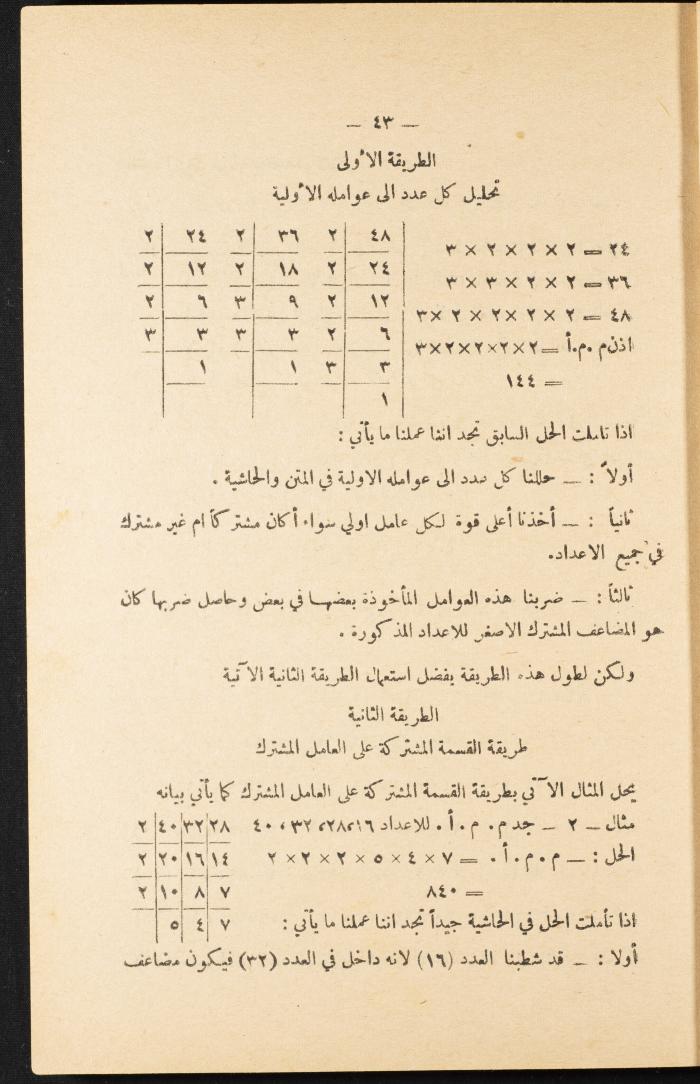 — ٤٣ —
الطريقة الأولى
تحليل كل عدد الى عوامله الأولية
٢٤ = ٢ × ٢ × ٢ × ٣
٣٦ = ٢ × ٢ × ٣ × ٣
٤٨ = ٢ × ٢ × ٢ × ٢ × ٣
اذن م .م.أ = ٢×٢×٢×٢×٣
= ١٤٤
٤٨ ٢ ٣٦ ٢ ٢٤ ٢
٢٤ ٢ ١٨ ٢ ١٢ ٢
١٢ ٢ ٩ ٣ ٦ ٢
٦ ٢ ٣ ٣ ٣ ٣
٣ ٣ ١ ١
١
اذا تاملت الحل السابق تجد اننا عملنا ما يأتي :
أولاً : — حللنا كل عدد الى عوامله الاولية في المتن والحاشية .
ثانياً : — أخذنا أعلى قوة لكل عامل اولي سواء أكان مشتركاً ام غير مشترك
في جميع الاعداد.
ثالثاً : — ضربنا هذه العوامل المأخوذة بعضها في بعض وحاصل ضربها كان
هو المضاعف المشترك الاصغر للاعداد المذكورة .
ولكن لطول هذه الطريقة يفضل استعمال الطريقة الثانية الآتية
الطريقة الثانية
طريقة القسمة المشتركة على العامل المشترك
يحل المثال الآتي بطريقة القسمة المشتركة على العامل المشترك كما يأتي بيانه
مثال — ٢ — جد م . م . أ . للاعداد ١٦،٢٨، ٣٢ ، ٤٠
الحل : — م . م . أ . = ٧ × ٤ × ٥ × ٢ × ٢ × ٢
= ٨٤٠
٢٨ ٣٢ ٤٠ ٢
١٤ ١٦ ٢٠ ٢
٧ ٨ ١٠ ٢
٧ ٤ ٥
اذا تأملت الحل في الحاشية جيداً تجد اننا عملنا ما يأتي :
أولا : — قد شطبنا العدد (١٦) لانه داخل في العدد (٣٢) فيكون مضاعف